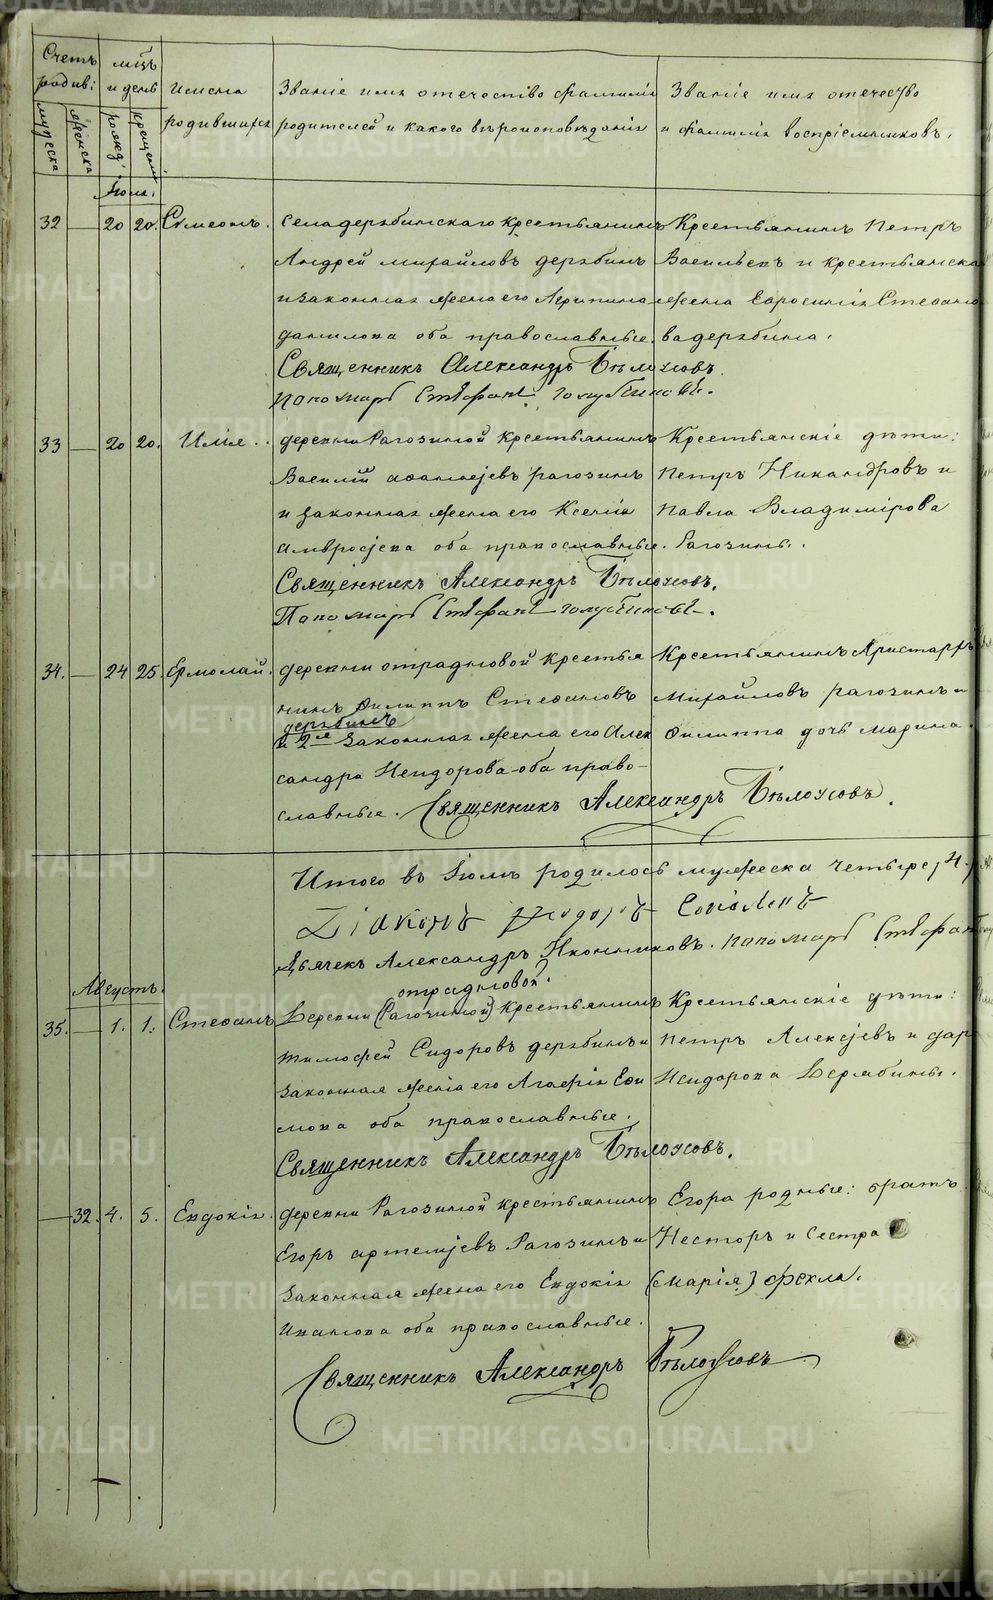 METRIKI.GASO-URAL.RU
Счетъ родив:
мужеска
женска
мц̃ъ и день
рожд:
крещенія
Имена родившихся
Званіе имя отечество фамилія
родителей и какого вѣроисповѣданія
Званіе имя отечество
и фамилія воспріемниковъ.
Іюль.
32 — 20 20. Сѵмеонъ.
Села дерябинскаго крестьянинъ
Андрей михайловъ дерябинъ
и законная жена его Агрипина
данилова оба православные.
Крестьянинъ Петръ
Васильевъ и крестьянска
жена Евросинія Стефано
ва дерябина.
Священникъ Александръ Бѣлоусовъ.
Пономарь Стефанъ Голубчиковъ.
33 — 20 20. Илія.
деревни Рагозиной крестьянинъ
Василій аѳанасьевъ рагозинъ
и законная жена его Ксенія
амвросіева оба православные.
Крестьянскіе дѣти:
Петръ Никандровъ и
Павла Владимірова
Рагозины.
Священникъ Александръ Бѣлоусовъ.
Пономарь Стефанъ Голубчиковъ.
34. — 24 25. Ермолай.
деревни отрадновой крестья
нинъ Филиппъ Стефановъ
дерябинъ
и 2я законная жена его Алек
сандра Исидорова оба право-
славные.
Крестьянинъ Аристархъ
Михайловъ рагозинъ и
Филиппа дочь марина.
Священникъ Александръ Бѣлоусовъ.
Итого въ Іюлѣ родилось мужеска четыре, 4.
Діаконъ Ѳеодоръ
Дьячекъ Александръ Иконниковъ. Пономарь Стефанъ
Августъ.
отрадновой.
35. — 1. 1. Стефанъ
Деревни (Рагозиной) крестьянинъ
тимофей Сидоровъ дерябинъ и
законная жена его Агафія Ефи
мова оба православные.
Крестьянскіе дѣти:
Петръ Алексѣевъ и дар
Исидорова Дерябины.
Священникъ Александръ Бѣлоусовъ.
— 32. 4. 5. Евдокія.
деревни Рагозиной крестьянинъ
Егоръ артемьевъ Рагозинъ и
законная жена его Евдокія
иванова оба православные.
Егора родные: братъ
Несторъ и сестра
(марія) Фекла.
Священникъ Александръ Бѣлоусовъ